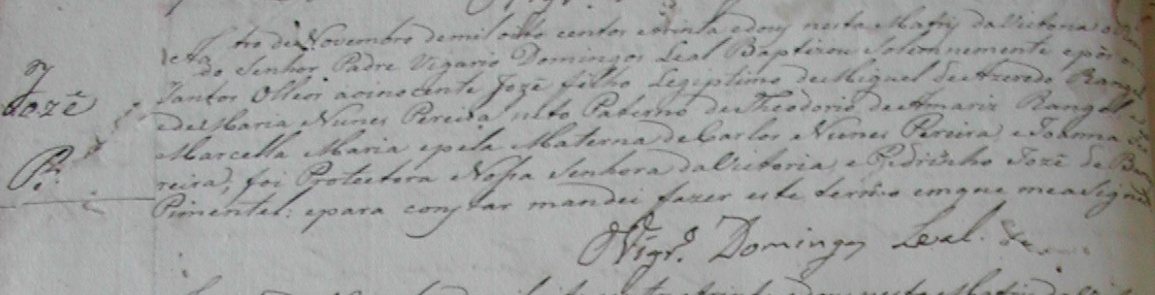 J
Jozê
Pr.
tro de Novembro de mil oito centos e trinta e dous nesta Matriz da Victoria o
do Senhor Padre Vigario Domingos Leal Baptizou Solemnemente e pôs os
Santos Olleos ao inocente Jozê filho Legiptimo de Miguel de Azeredo Rangel
e de Maria Nunes Pereira neto Paterno de Theodorio de Amariz Rangel e
Marcella Maria e pela Materna de Carlos Nunes Pereira, e Joanna
reira, foi Protectora Nossa Senhora da Victoria, e Padrinho Jozê de
Pimentel: e para constar mandei fazer este termo em que me aSigno
O Vigr.º Domingos Leal.